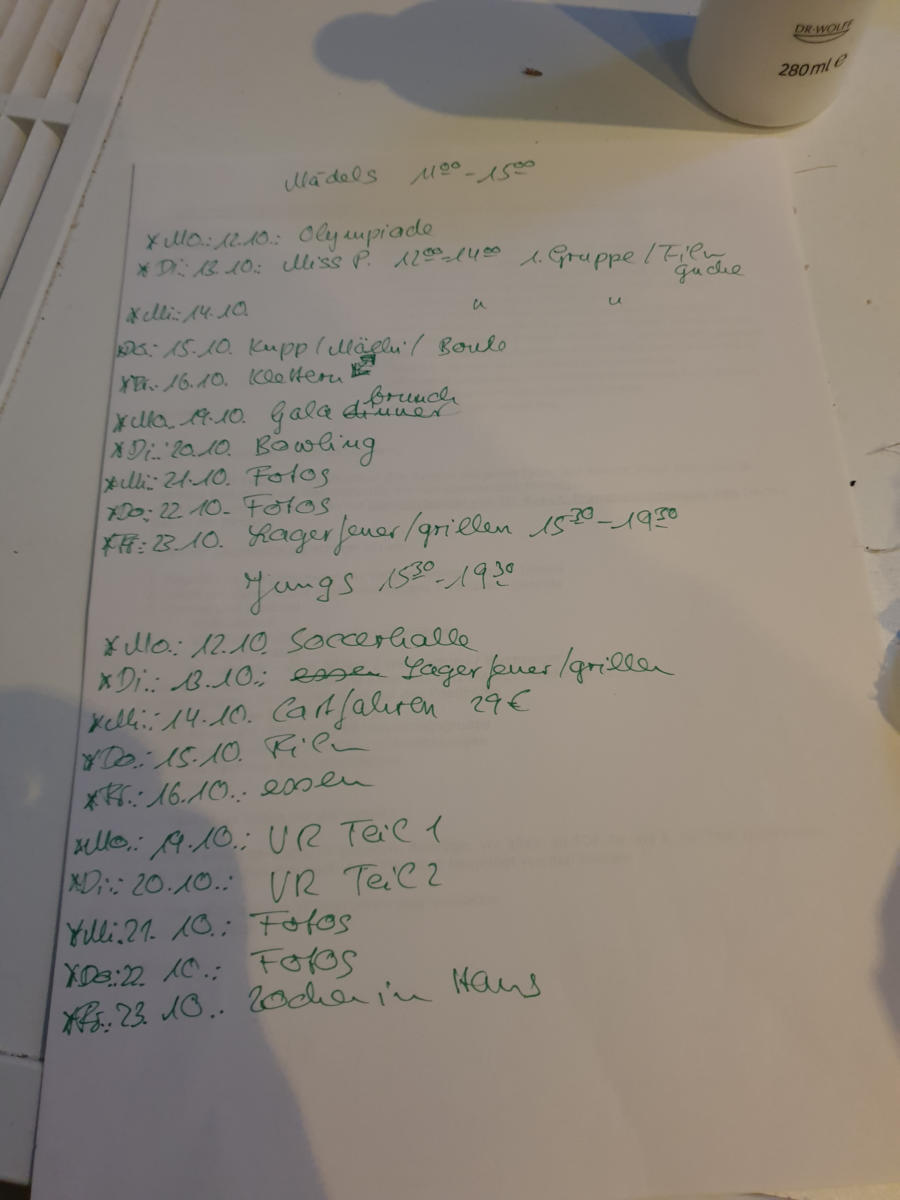 DR·WOLFF
280ml e
Mädels 11⁰⁰-15⁰⁰
*Mo.: 12.10.: Olympiade
*Di.: 13.10.: Miss P. 12⁰⁰-14⁰⁰ 1. Gruppe/Film
gucke
*Mi.: 14.10. " "
*Do.: 15.10. Kupp/ / Boule
*Fr. 16.10. Klettern
brunch
*Mo. 19.10. Gala dinner
*Di.: 20.10. Bowling
*Mi.: 21.10. Fotos
*Do.: 22.10. Fotos
*Fr.: 23.10. Lagerfeuer/grillen 15³⁰-19³⁰
Jungs 15³⁰-19³⁰
*Mo.: 12.10. Soccerhalle
*Di.: 13.10.: essen Lagerfeuer/grillen
*Mi.: 14.10. Cartfahren 29€
*Do.: 15.10. Film
*Fr.: 16.10.: essen
*Mo.: 19.10.: VR Teil 1
*Di.: 20.10.: VR Teil 2
*Mi.: 21.10.: Fotos
*Do.: 22.10.: Fotos
*Fr.: 23.10.: Zocken im Haus